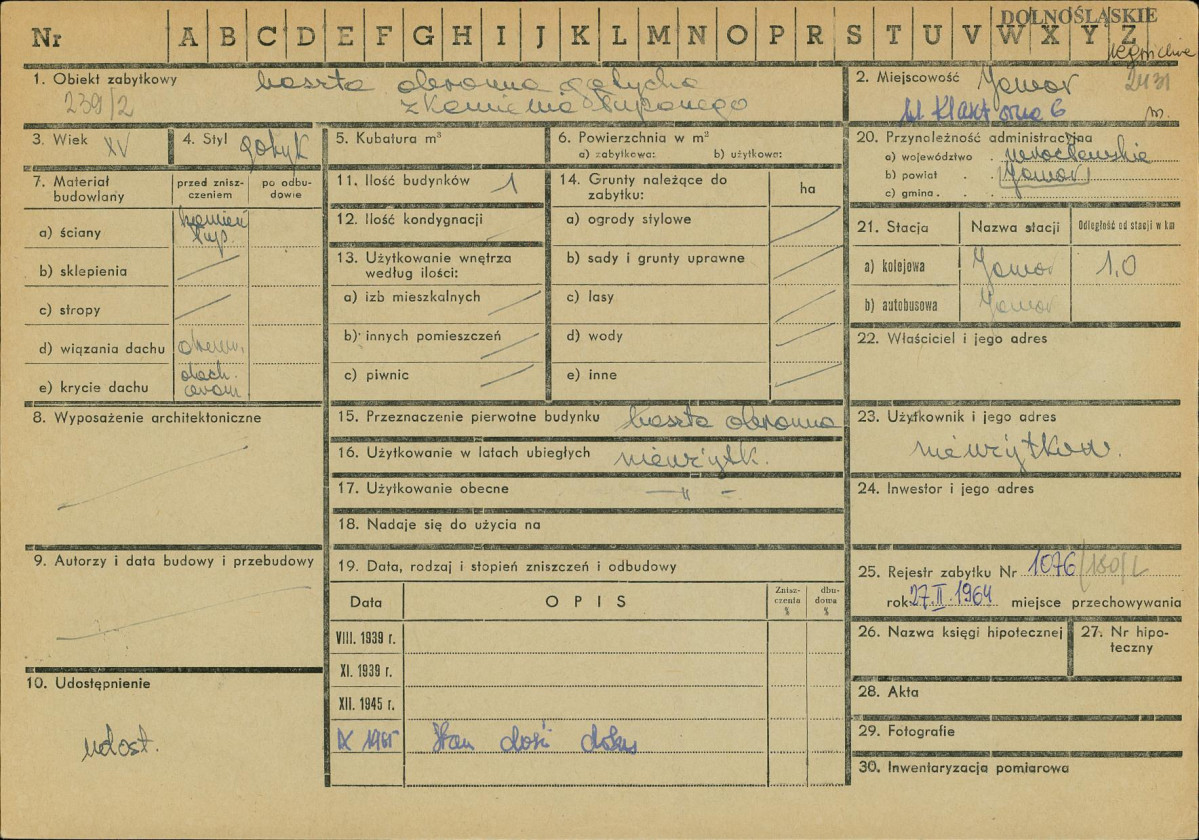 DOLNOŚLĄSKIE
Nr A B C D E F G H I J K L M N O P R S T U V W X Y Z
1. Obiekt zabytkowy baszta obronna gotycka
z kamienia łupanego
239/2
2. Miejscowość Jawor 2431
ul. Klasztorna 6
3. Wiek XV
4. Styl gotyk
5. Kubatura m³
6. Powierzchnia w m²
a) zabytkowa: b) użytkowa:
20. Przynależność administracyjna
a) województwo wrocławskie
b) powiat Jawor
c) gmina
7. Materiał budowlany
przed zniszczeniem
po odbudowie
a) ściany kamień łup.
b) sklepienia
c) stropy
d) wiązania dachu drewn.
e) krycie dachu
11. Ilość budynków 1
12. Ilość kondygnacji
13. Użytkowanie wnętrza według ilości:
a) izb mieszkalnych
b) innych pomieszczeń
c) piwnic
14. Grunty należące do zabytku: ha
a) ogrody stylowe
b) sady i grunty uprawne
c) lasy
d) wody
e) inne
21. Stacja Nazwa stacji Odległość od stacji w km
a) kolejowa Jawor 1,0
b) autobusowa Jawor
22. Właściciel i jego adres
8. Wyposażenie architektoniczne
15. Przeznaczenie pierwotne budynku baszta obronna
16. Użytkowanie w latach ubiegłych nieużytk.
17. Użytkowanie obecne — " —
18. Nadaje się do użycia na
23. Użytkownik i jego adres
nieużytkow.
24. Inwestor i jego adres
9. Autorzy i data budowy i przebudowy
19. Data, rodzaj i stopień zniszczeń i odbudowy
Data OPIS Zniszczenia % dbudowa %
VIII. 1939 r.
XI. 1939 r.
XII. 1945 r.
IX 1965 Stan dość dobry
25. Rejestr zabytku Nr 1076/180/L
rok 27.II.1964 miejsce przechowywania
26. Nazwa księgi hipotecznej
27. Nr hipoteczny
10. Udostępnienie
udost.
28. Akta
29. Fotografie
30. Inwentaryzacja pomiarowa